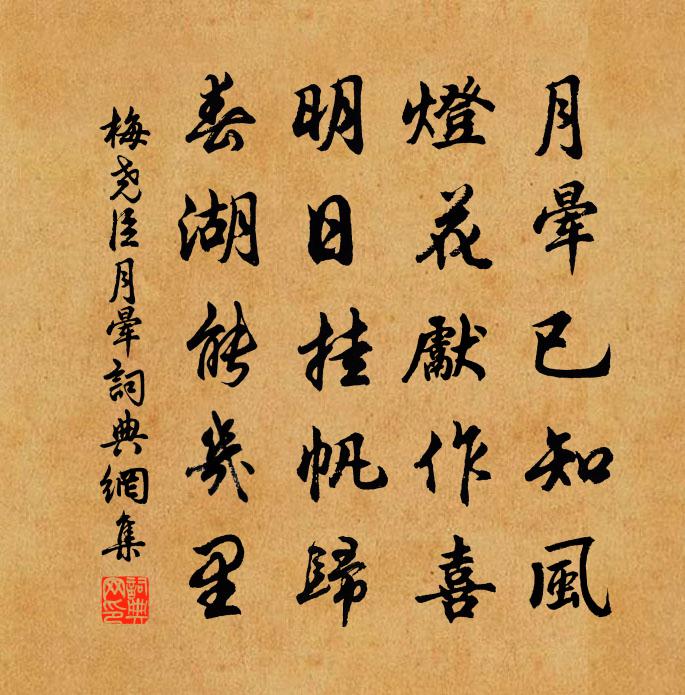 月暈已知風
燈花獻作喜
明日挂帆歸
春湖能幾里
梅堯臣月暈詞典網集
詞典
网印